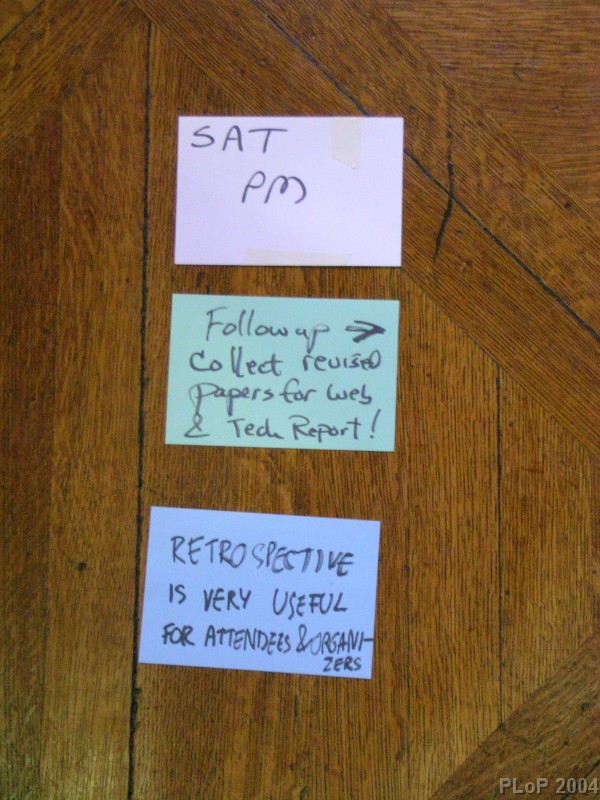 SAT
PM
Follow up →
Collect revised
papers for web
& Tech Report!
RETROSPECTIVE
IS VERY USEFUL
FOR ATTENDEES & ORGANI-
ZERS
PLoP 2004